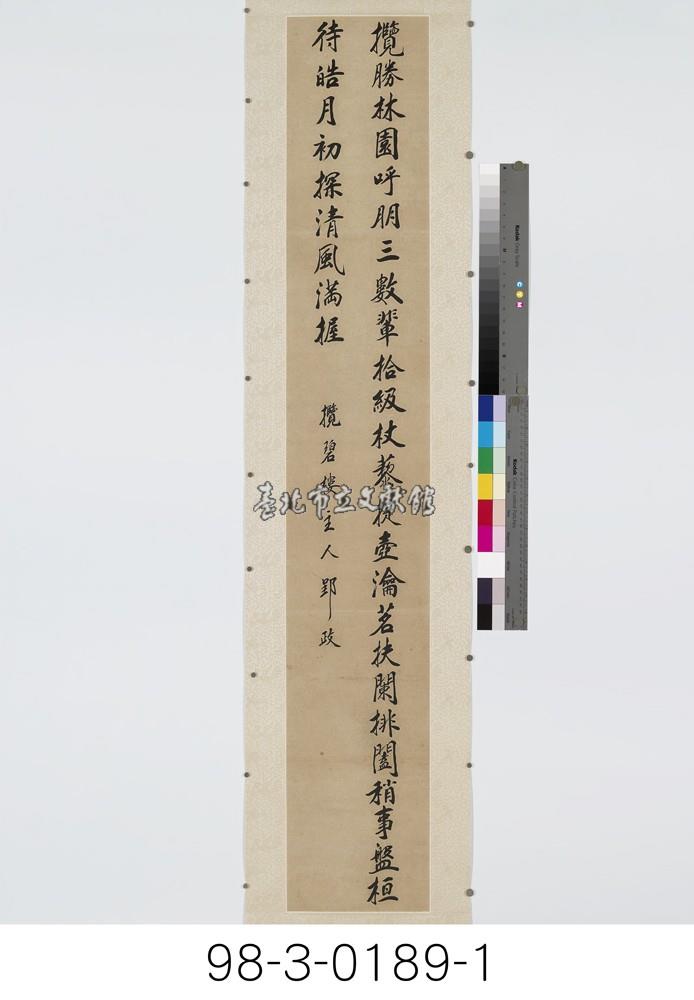 攬勝林園呼朋三數輩拾級杖藜從壺瀹茗扶闌排闥稍事盤桓
待皓月初探清風滿握
攬碧樓主人郢政
臺北市立文獻館
98-3-0189-1